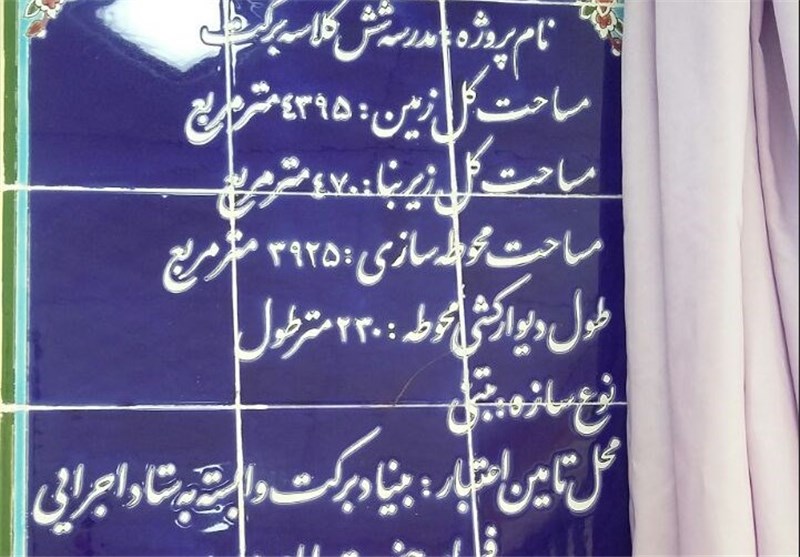 نام پروژه : مدرسه شش کلاسه برکت
مساحت کل زمین : ۴۳۹۵ مترمربع
مساحت کل زیربنا : ۴۷۰ مترمربع
مساحت محوطه سازی : ۳۹۲۵ مترمربع
طول دیوارکشی محوطه : ۲۳۰ مترطول
نوع سازه : بتنی
محل تامین اعتبار : بنیاد برکت وابسته به ستاد اجرایی